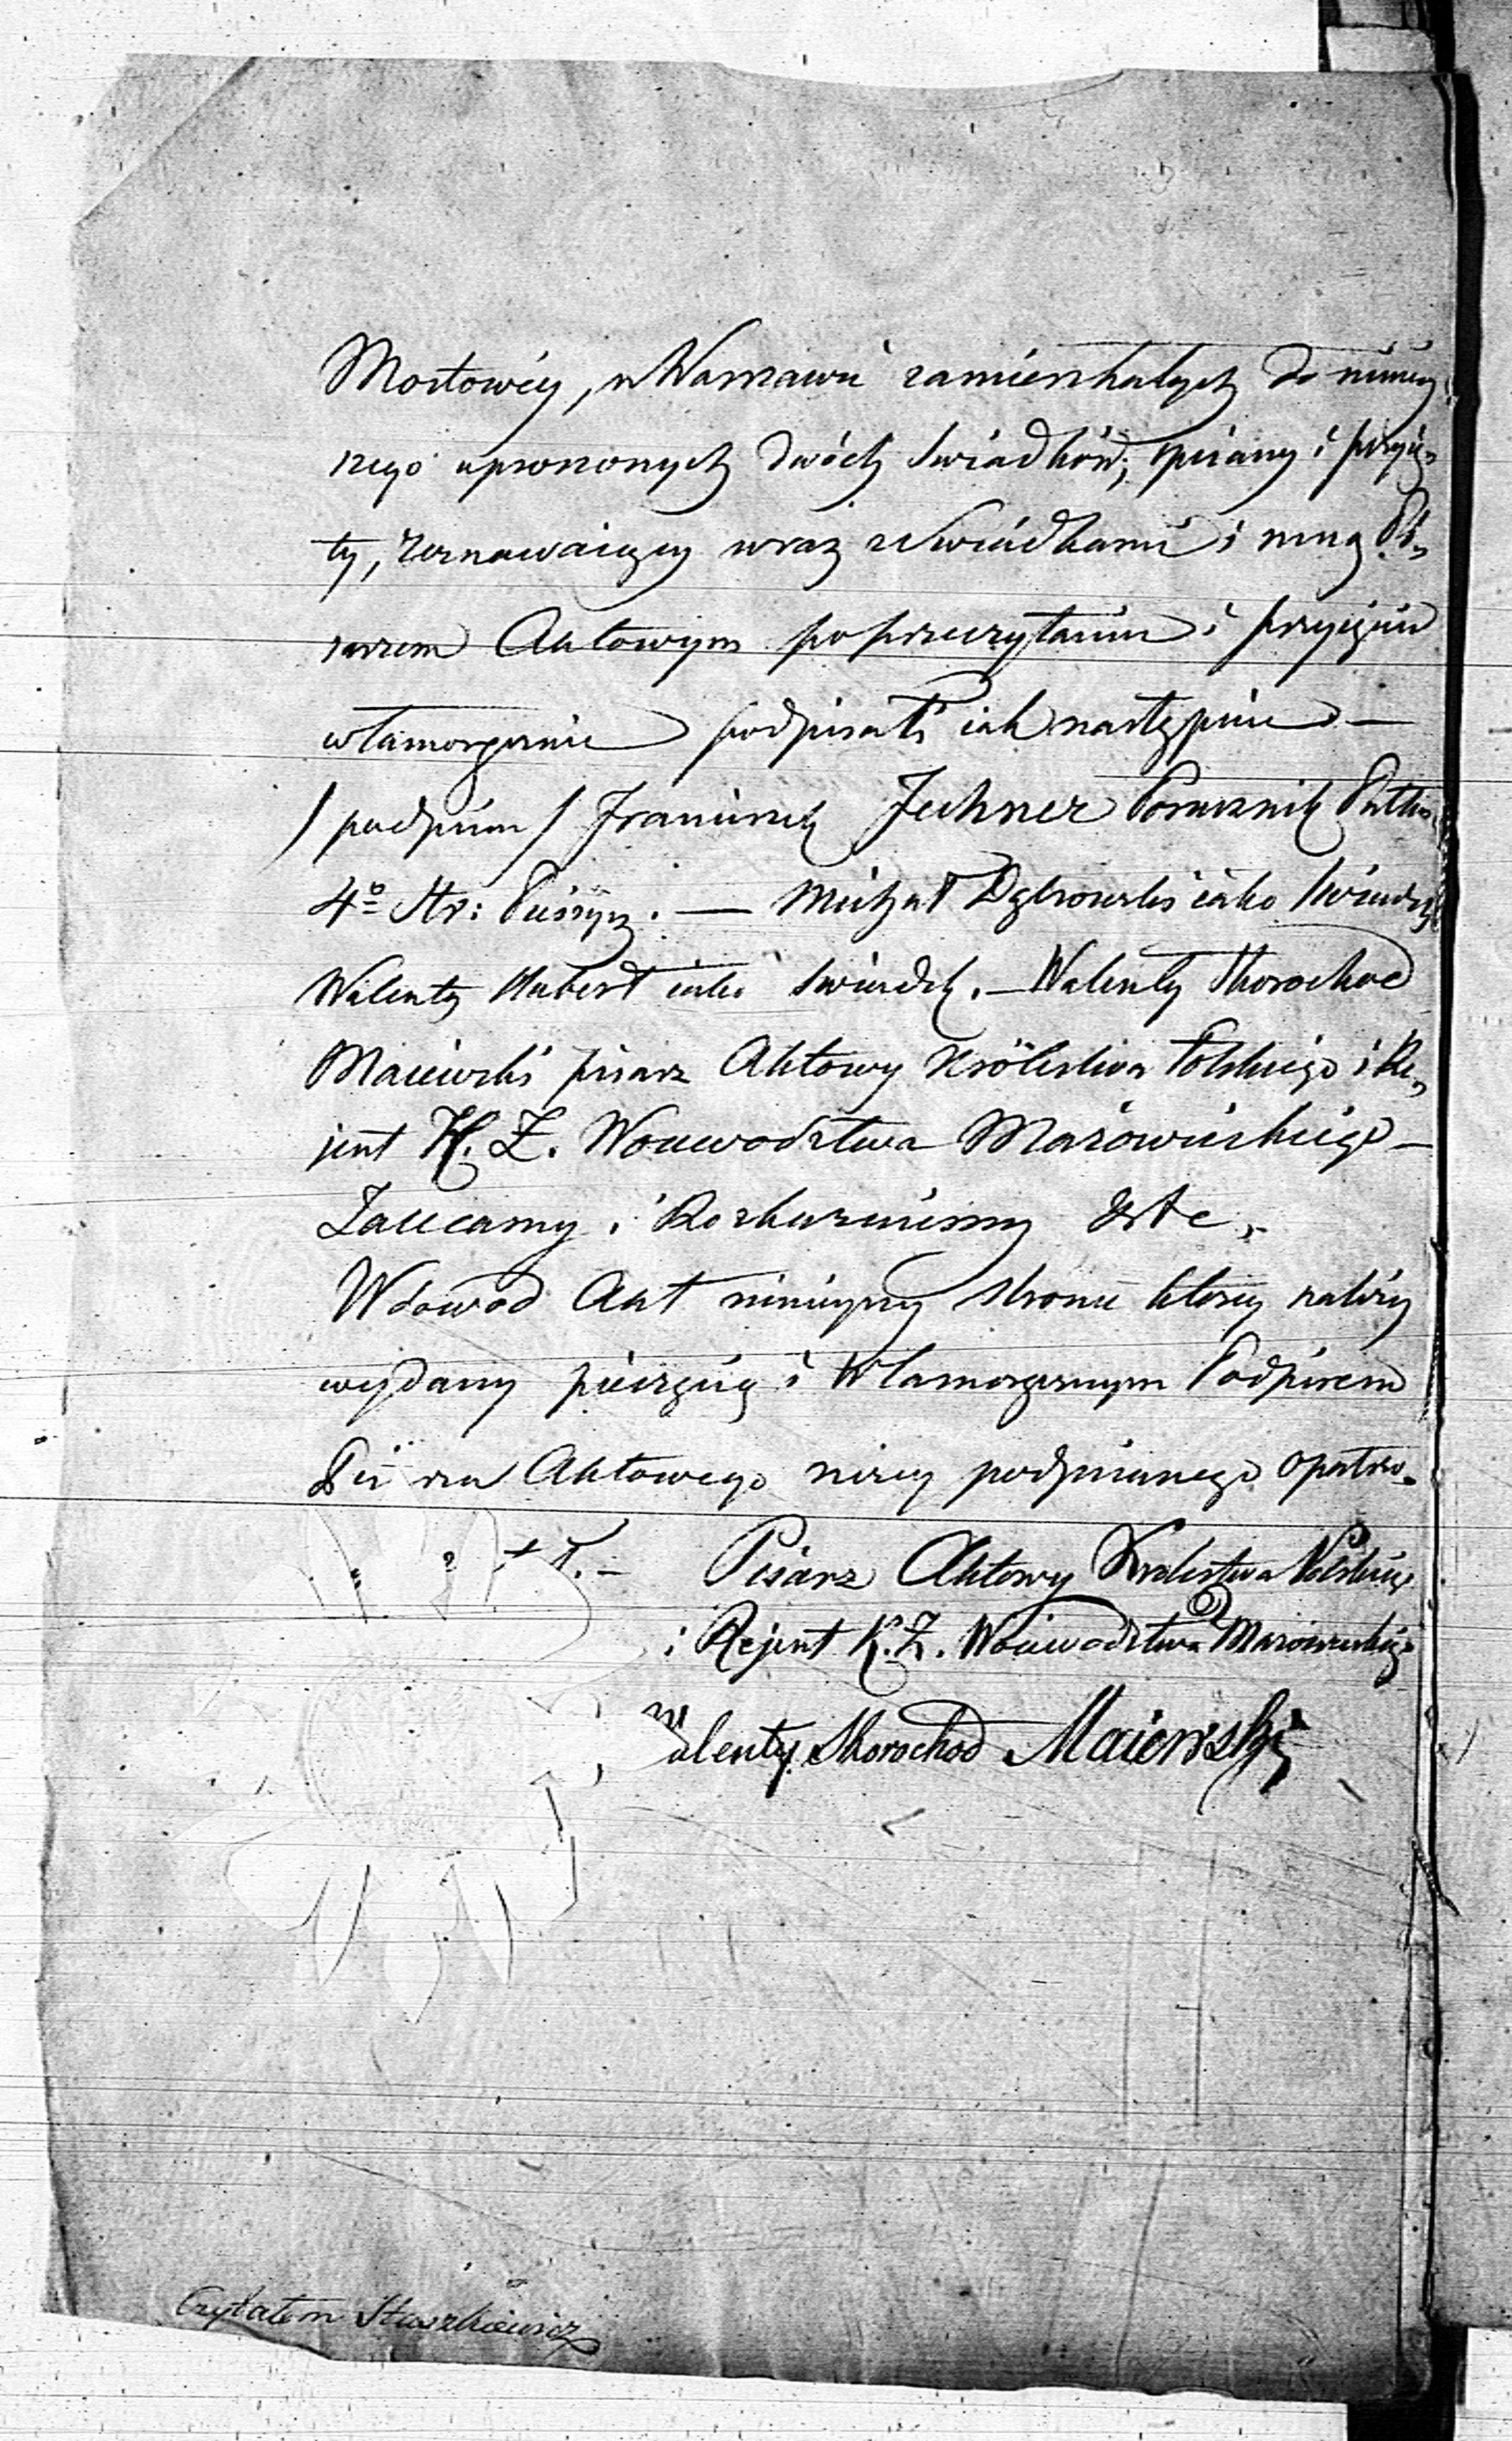 Mostowéy, w Warszawie zamieszkałych do ninie,
szego uproszonych dwóch świadków, spisany i przyię,
ty, zeznawaiący wraz z świadkami i mną Pi,
sarzem Aktowym po przeczytaniu i przyięciu
własnoręcznie podpisali iak następuie —
/ podpisano / Franciszek Jechner Porucznik Pułku
4º Str: Pieszych. — Michał Dąbrowski iako świadek
Walenty Hubert iako świadek. — Walenty Skorochod
Maiewski pisarz Aktowy Królestwa Polskiego i Re,
jent K. Z. Woiewodztwa Mazowieckiego —
Zalecamy i Rozkazuiemy &tc.
W dowód Akt ninieyszy stronie którey należy
wydany pieczęcią i własnoręcznym Podpisem
Pisarza Aktowego niżey podpisanego opatrzo-
Pisarz Aktowy Królestwa Polskiego
i Rejent K. Z. Woiewodztwa Mazowieckiego
Walenty Skorochod Maiewski
Czytałem Staszkiewicz